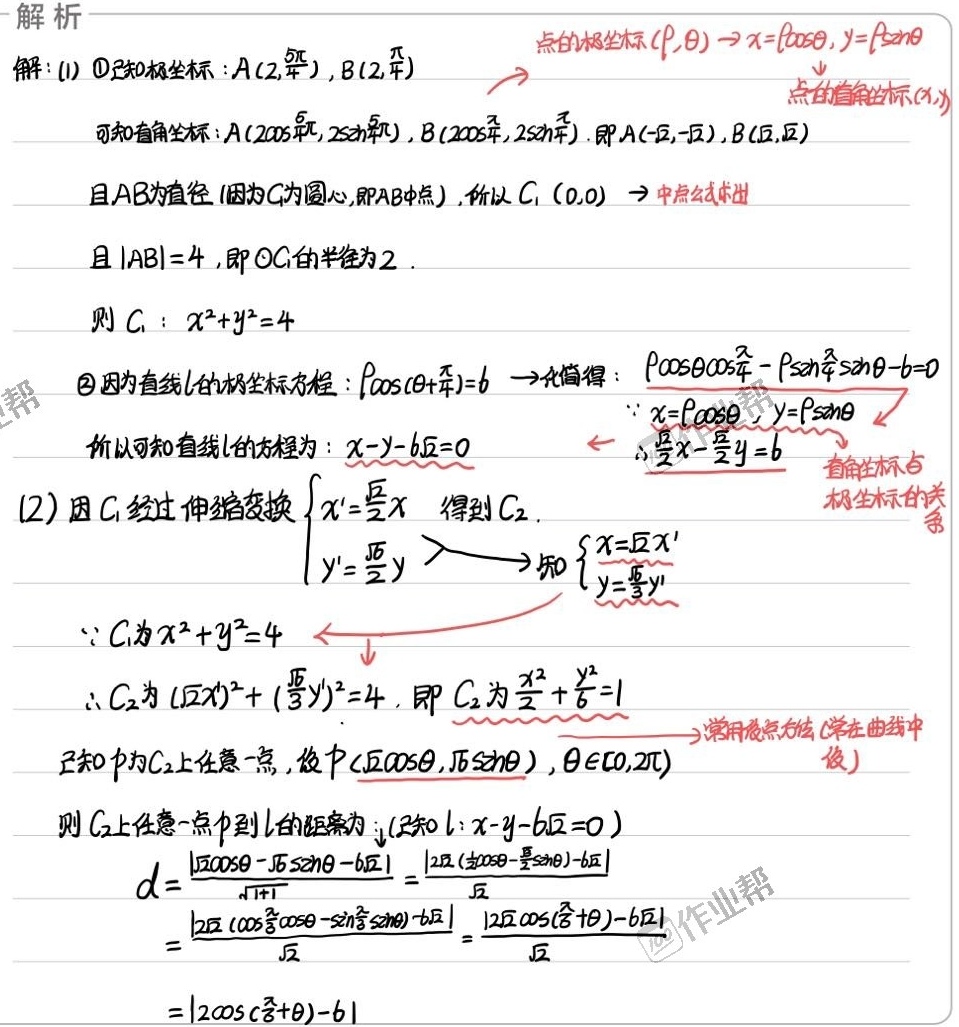 解析
点的极坐标(ρ,θ)→x=ρcosθ, y=ρsinθ
点的直角坐标(x,y)
解:(1) ①已知极坐标:A(2,5π/4),B(2,π/4)
可知直角坐标:A(2cos5/4π,2sin5/4π),B(2cosπ/4,2sinπ/4).即A(-√2,-√2),B(√2,√2)
且AB为直径(因为C₁为圆心,即AB中点),所以C₁(0,0) → 中点公式求出
且|AB|=4,即⊙C₁的半径为2.
则C₁: x²+y²=4
②因为直线l的极坐标方程:ρcos(θ+π/4)=6 →化简得: ρcosθcosπ/4-ρsinπ/4sinθ-6=0
∵ x=ρcosθ, y=ρsinθ
所以可知直线l的方程为:x-y-6√2=0 ← ∴ √2/2x-√2/2y=6
直角坐标与
极坐标的关
系
(2)因C₁经过伸缩变换{x'=√2/2x 得到C₂.
y'=√6/2y → 知{x=√2x'
y=√6/3y'
∵ C₁为x²+y²=4
∴ C₂为(√2x')²+(√6/3y')²=4,即C₂为x²/2+y²/6=1
→常用设点方法(常在曲线中
设)
已知P为C₂上任意一点,设P(√2cosθ,√6sinθ),θ∈[0,2π)
则C₂上任意一点P到l的距离为:↓(已知l:x-y-6√2=0)
d=|√2cosθ-√6sinθ-6√2|/√1+1=|2√2(1/2cosθ-√3/2sinθ)-6√2|/√2
=|2√2(cosπ/3cosθ-sinπ/3sinθ)-6√2|/√2=|2√2cos(π/3+θ)-6√2|/√2
=|2cos(π/3+θ)-6|
作业帮
作业帮